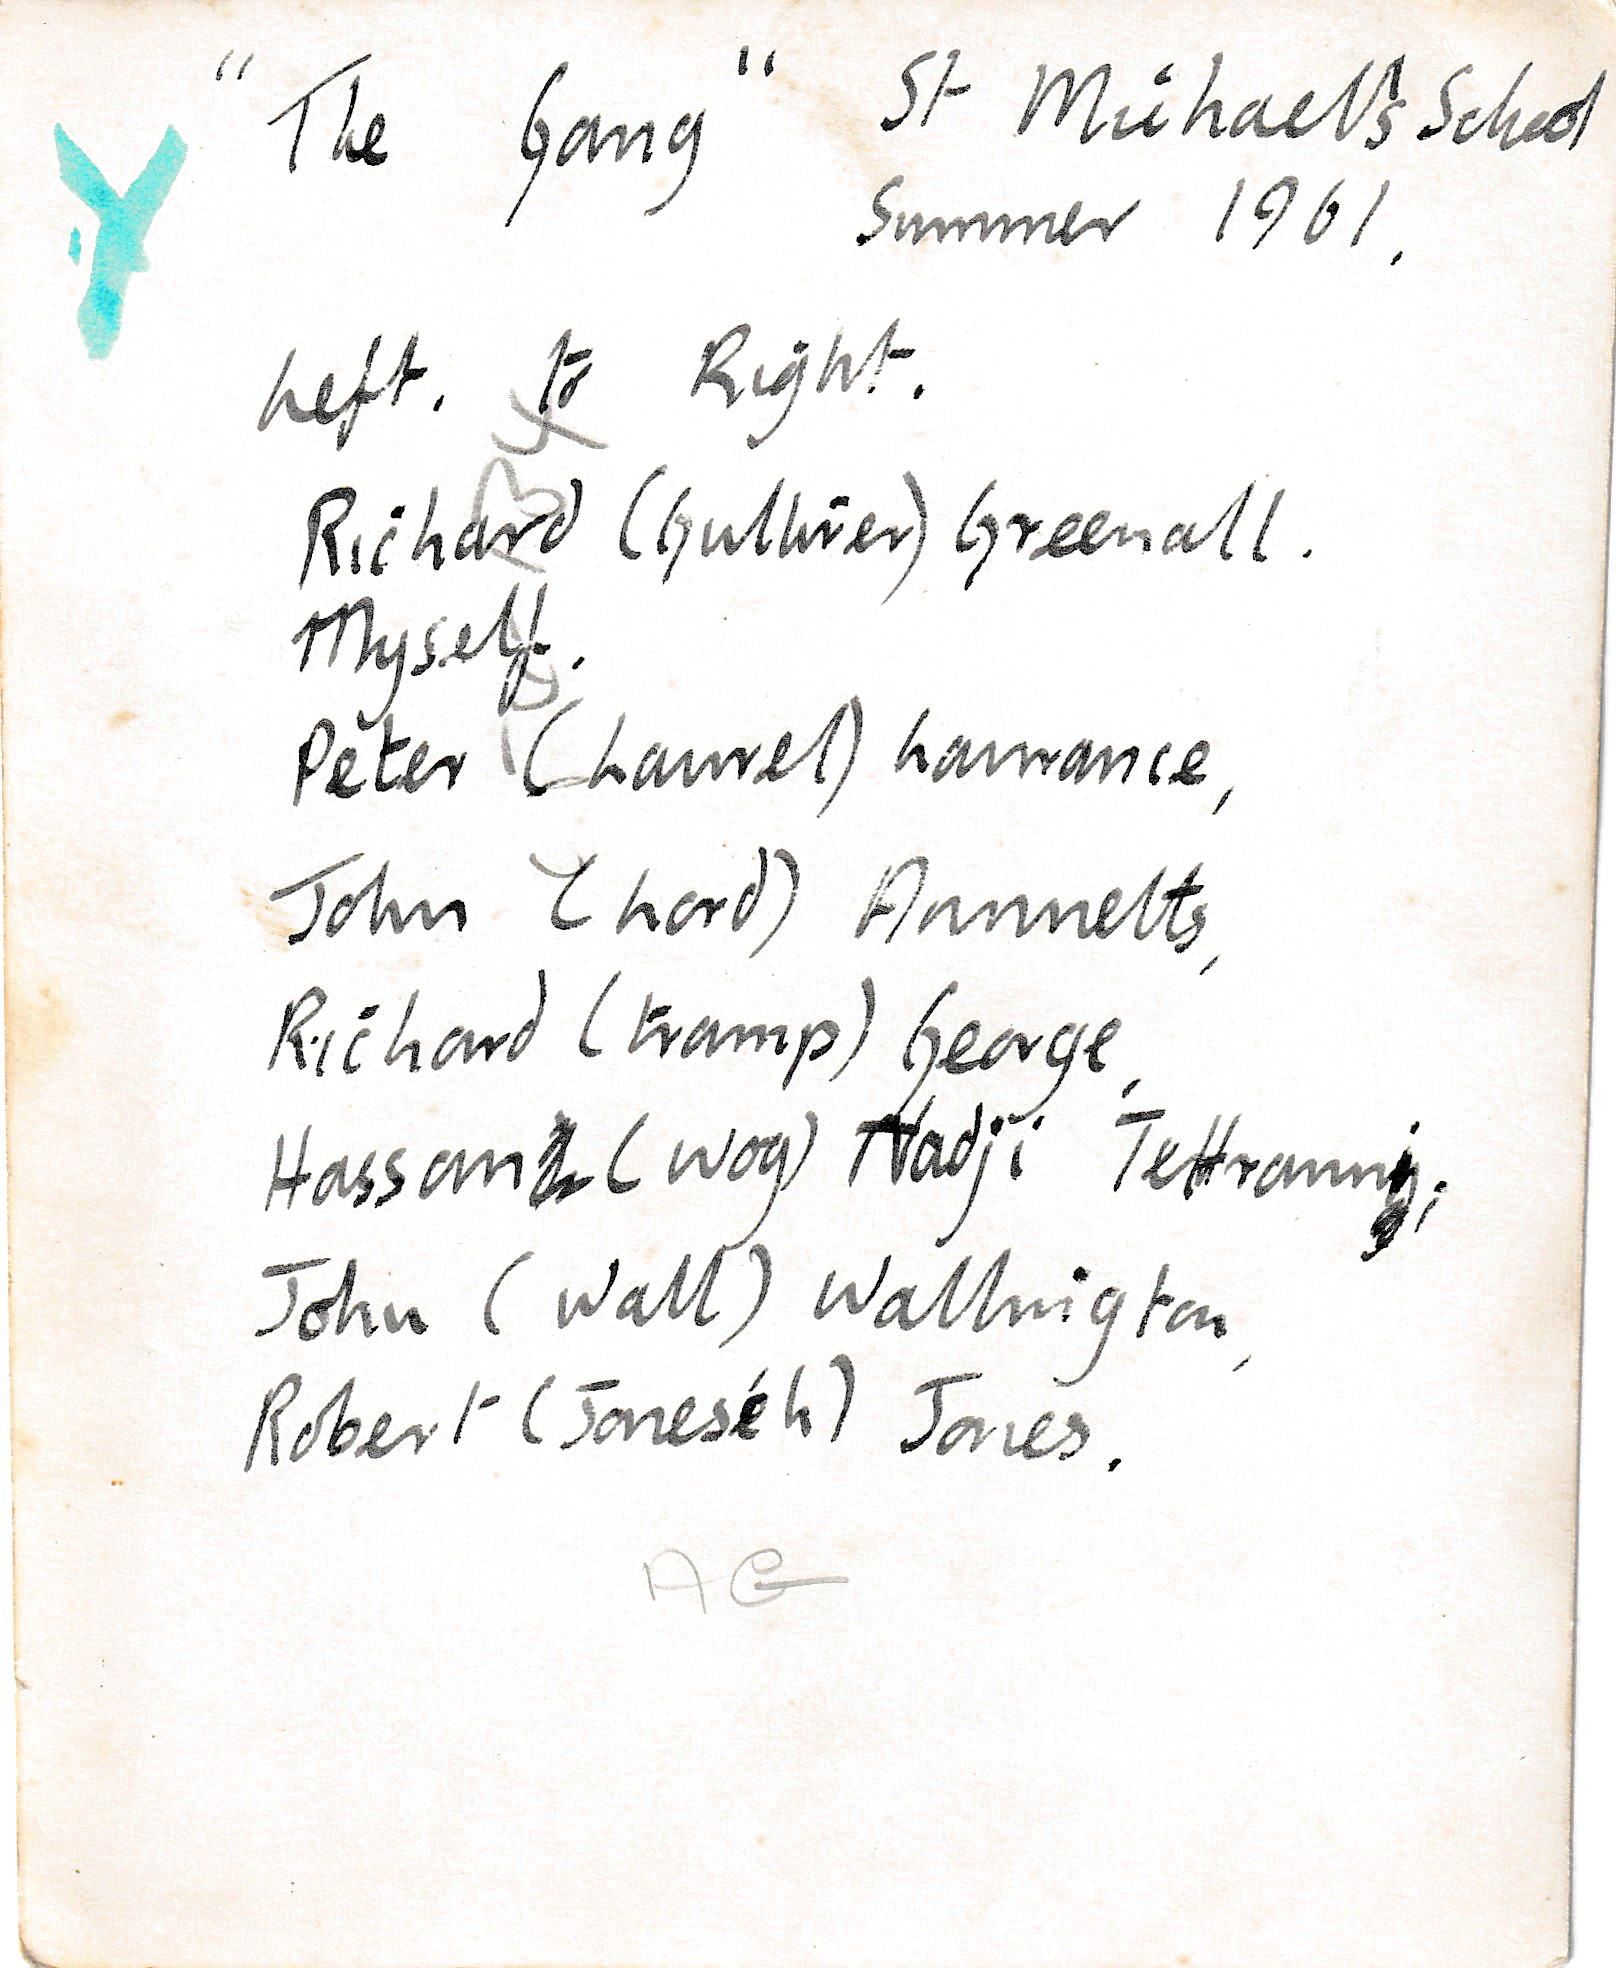 "The Gang" St Michael's School
Summer 1961.
Left. to Right.
Richard (Gulliver) Greenall.
Myself.
Peter (Laurel) Laurance,
John (Lord) Annnelts,
Richard (tramp) George,
Hassan (wog) Nadji TeHranni,
John (Wall) Wallington,
Robert (Jonesih) Jones.
AG